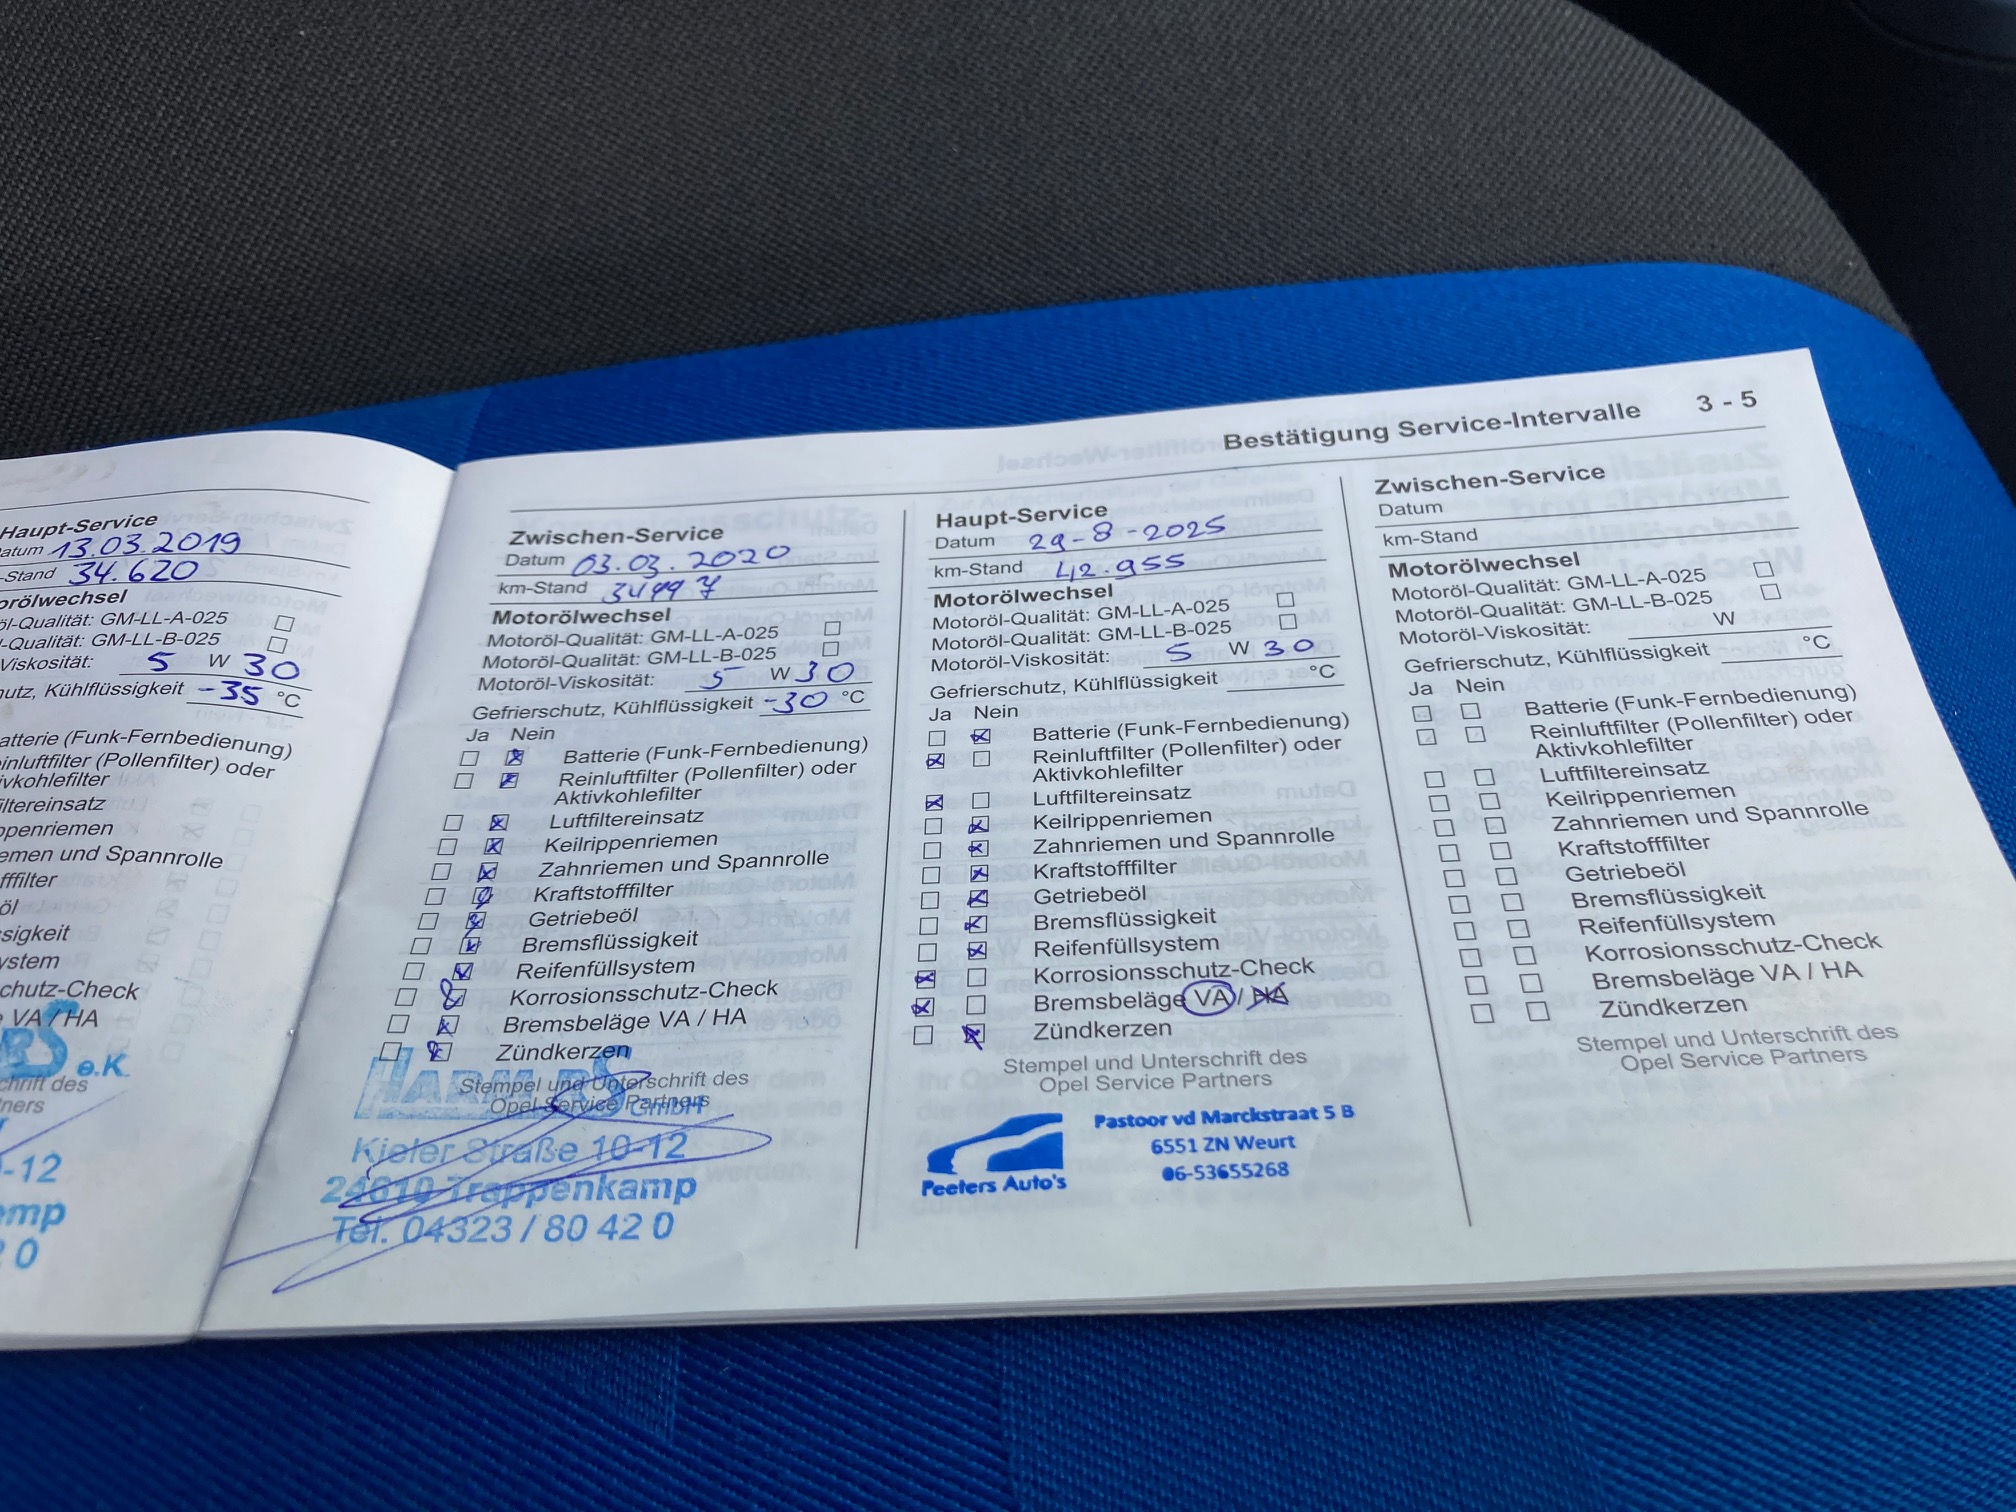 Haupt-Service
atum 13.03.2019
-Stand 34.620
orölwechsel
öl-Qualität: GM-LL-A-025
-Qualität: GM-LL-B-025
Viskosität: 5 W 30
hutz, Kühlflüssigkeit -35 °C
atterie (Funk-Fernbedienung)
einluftfilter (Pollenfilter) oder
ivkohlefilter
iltereinsatz
ppenriemen
emen und Spannrolle
fffilter
öl
sigkeit
ystem
chutz-Check
VA / HA
RS e.K.
chrift des
tners
-12
emp
20
Zwischen-Service
Datum 03.03.2020
km-Stand 34997
Motorölwechsel
Motoröl-Qualität: GM-LL-A-025
Motoröl-Qualität: GM-LL-B-025
Motoröl-Viskosität: 5 W 30
Gefrierschutz, Kühlflüssigkeit -30 °C
Ja Nein
Batterie (Funk-Fernbedienung)
Reinluftfilter (Pollenfilter) oder
Aktivkohlefilter
Luftfiltereinsatz
Keilrippenriemen
Zahnriemen und Spannrolle
Kraftstofffilter
Getriebeöl
Bremsflüssigkeit
Reifenfüllsystem
Korrosionsschutz-Check
Bremsbeläge VA / HA
Zündkerzen
Stempel und Unterschrift des
Opel Service Partners
HARM RS GmbH
Kieler Straße 10-12
24610 Trappenkamp
Tel. 04323 / 80 42 0
Bestätigung Service-Intervalle 3 - 5
Haupt-Service
Datum 29-8-2025
km-Stand 42.955
Motorölwechsel
Motoröl-Qualität: GM-LL-A-025
Motoröl-Qualität: GM-LL-B-025
Motoröl-Viskosität: 5 W 30
Gefrierschutz, Kühlflüssigkeit °C
Ja Nein
Batterie (Funk-Fernbedienung)
Reinluftfilter (Pollenfilter) oder
Aktivkohlefilter
Luftfiltereinsatz
Keilrippenriemen
Zahnriemen und Spannrolle
Kraftstofffilter
Getriebeöl
Bremsflüssigkeit
Reifenfüllsystem
Korrosionsschutz-Check
Bremsbeläge VA / HA
Zündkerzen
Stempel und Unterschrift des
Opel Service Partners
Peeters Auto's
Pastoor vd Marckstraat 5 B
6551 ZN Weurt
06-53655268
Zwischen-Service
Datum
km-Stand
Motorölwechsel
Motoröl-Qualität: GM-LL-A-025
Motoröl-Qualität: GM-LL-B-025
Motoröl-Viskosität: W
Gefrierschutz, Kühlflüssigkeit °C
Ja Nein
Batterie (Funk-Fernbedienung)
Reinluftfilter (Pollenfilter) oder
Aktivkohlefilter
Luftfiltereinsatz
Keilrippenriemen
Zahnriemen und Spannrolle
Kraftstofffilter
Getriebeöl
Bremsflüssigkeit
Reifenfüllsystem
Korrosionsschutz-Check
Bremsbeläge VA / HA
Zündkerzen
Stempel und Unterschrift des
Opel Service Partners